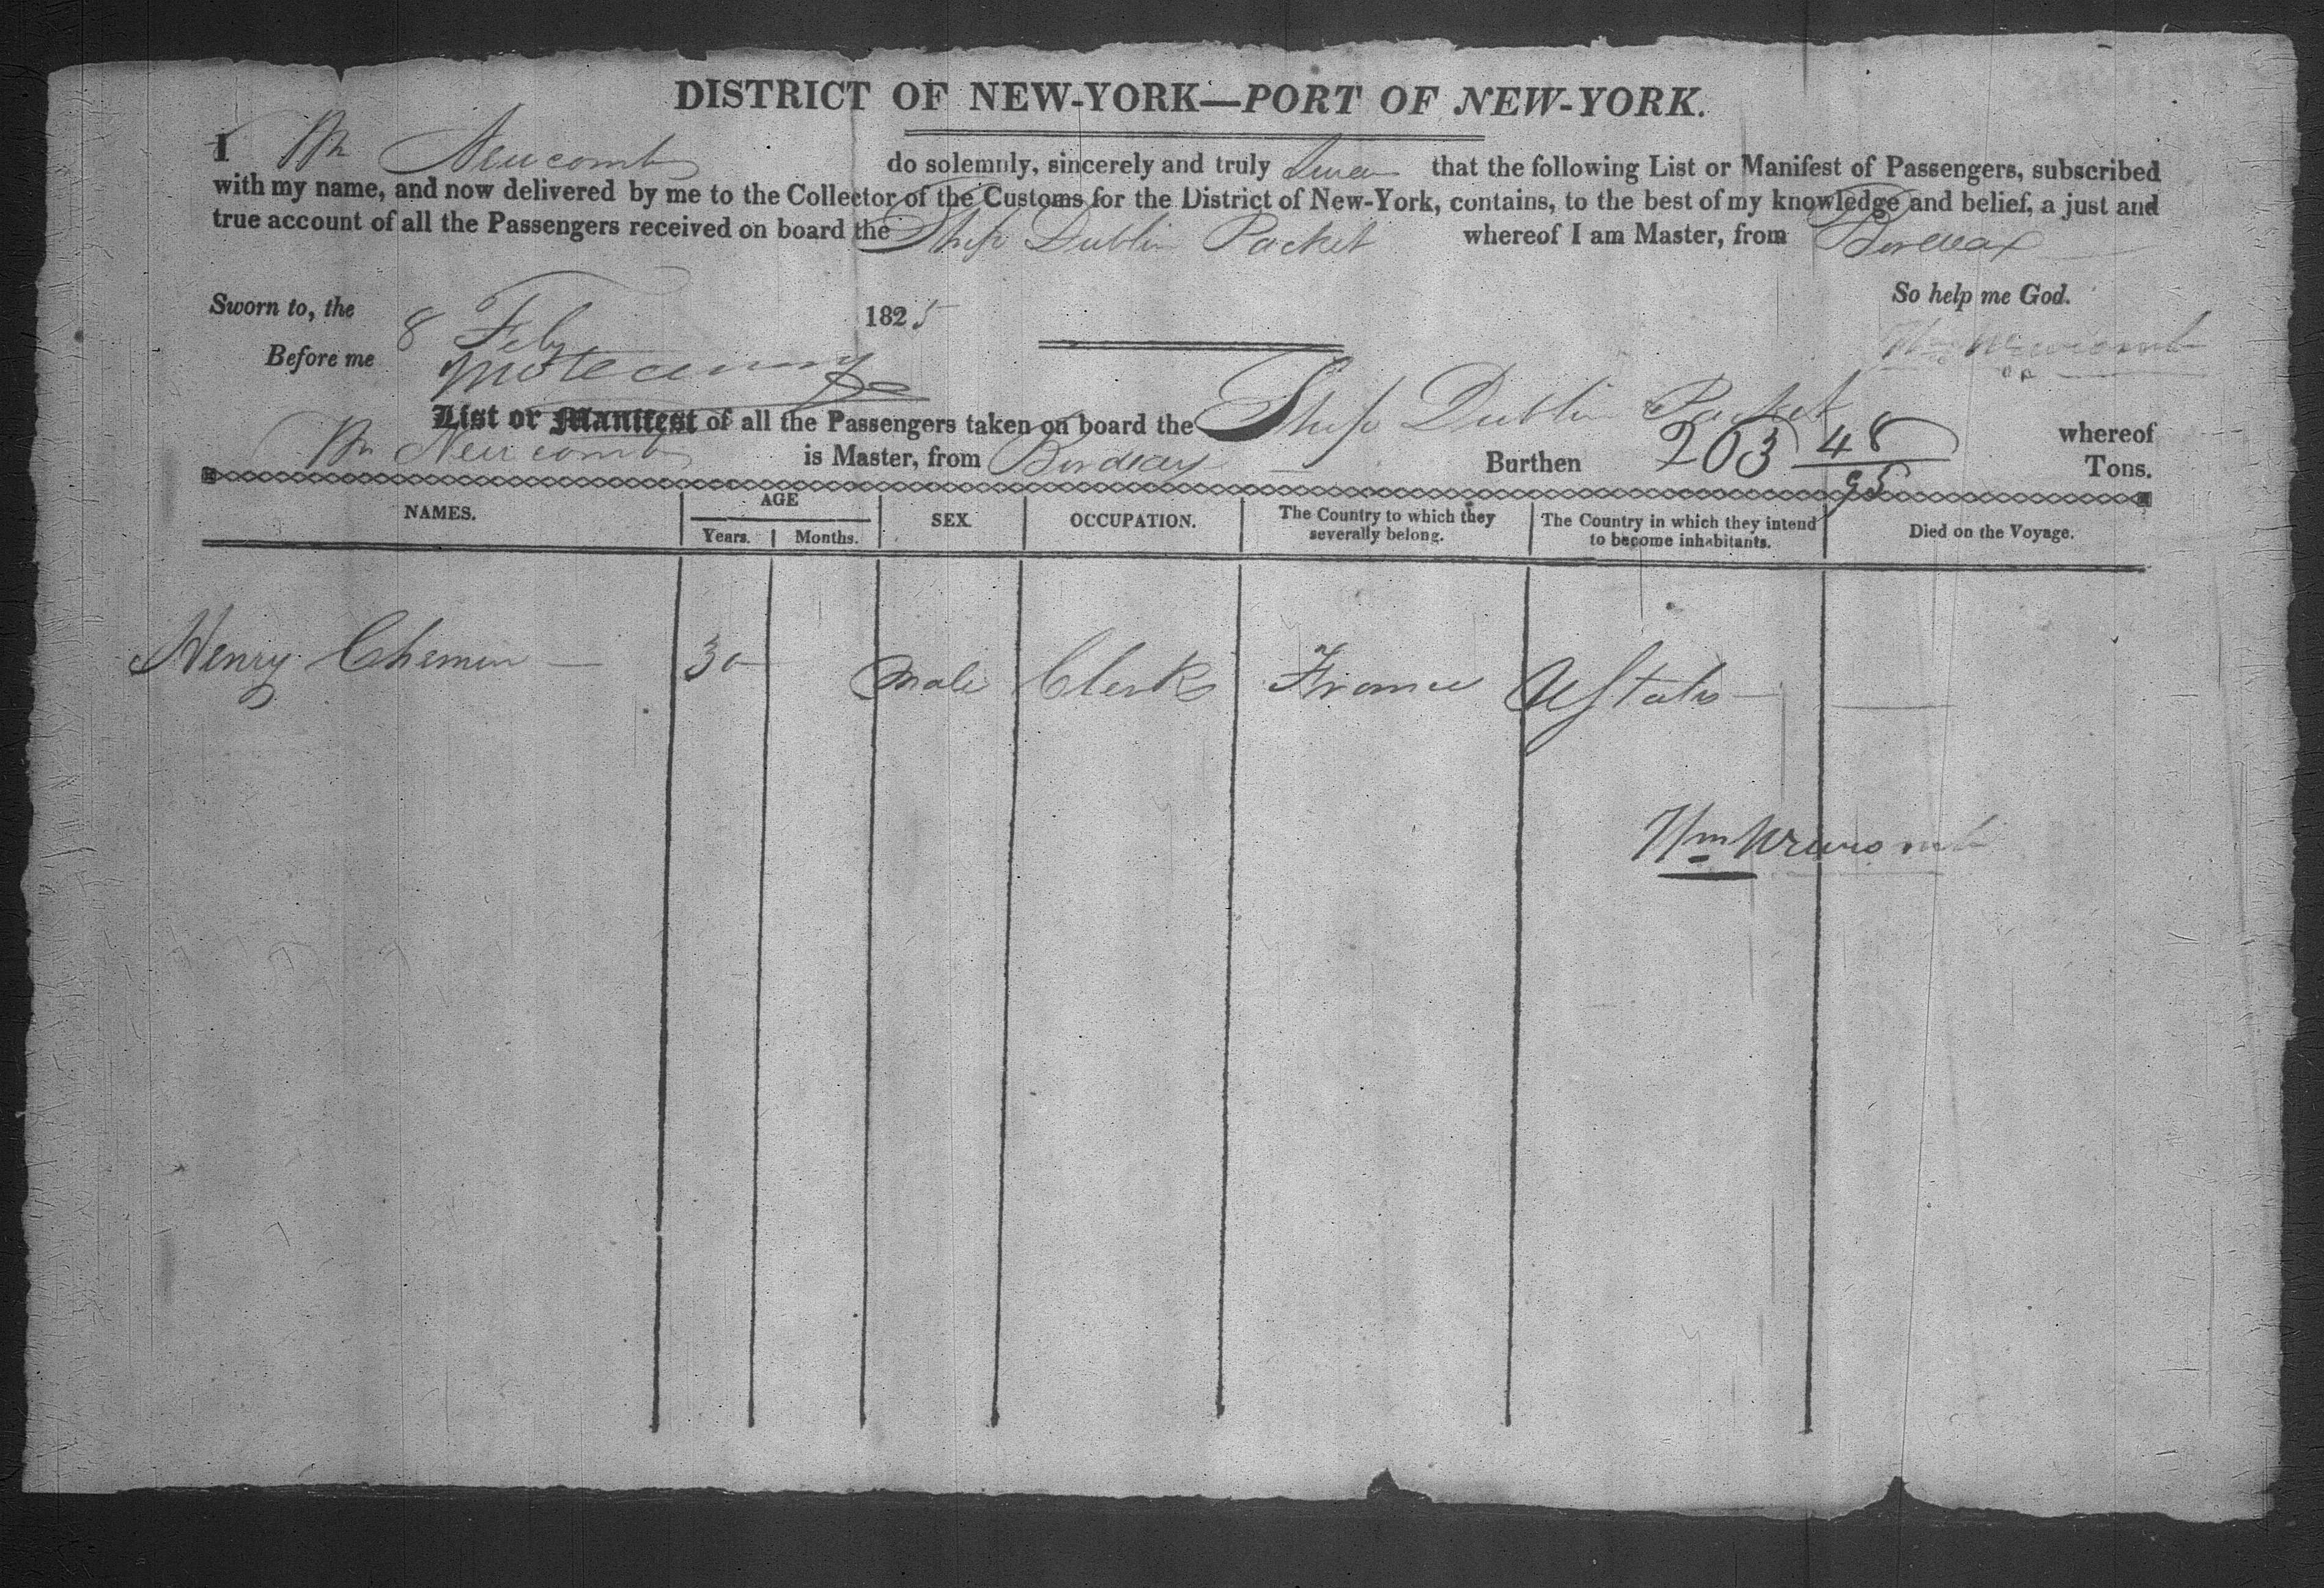 DISTRICT OF NEW-YORK—PORT OF NEW-YORK.
I Wm Newcomb do solemnly, sincerely and truly Swear that the following List or Manifest of Passengers, subscribed
with my name, and now delivered by me to the Collector of the Customs for the District of New-York, contains, to the best of my knowledge and belief, a just and
true account of all the Passengers received on board the Ship Dublin Packet whereof I am Master, from Bordeax
So help me God.
Sworn to, the 8 Feby 1825
Before me
Wm Newcomb
List or Manifest of all the Passengers taken on board the Ship Dublin Packet whereof
Wm Newcomb is Master, from Bordeax Burthen 203 48/95 Tons.
NAMES. AGE Years. Months. SEX. OCCUPATION. The Country to which they severally belong. The Country in which they intend to become inhabitants. Died on the Voyage.
Henry Chemin — 30 Male Clerk France UStates —
Wm Newcomb